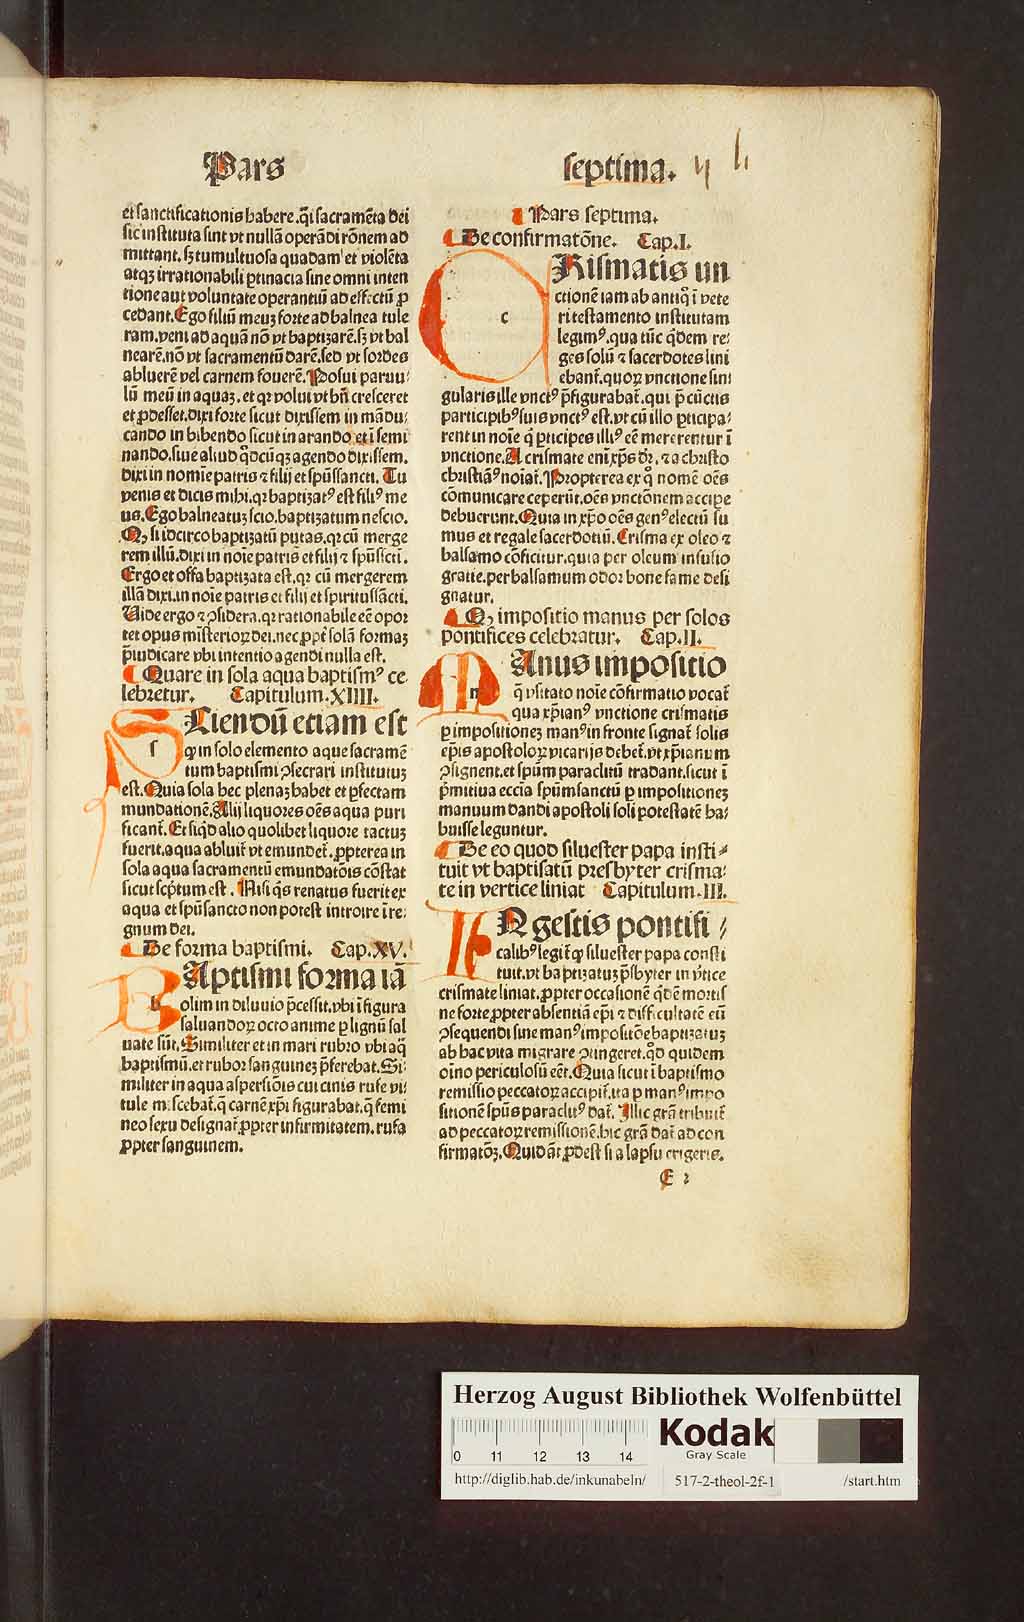 Pars
septima.
et sanctificationis habere.q̄i sacramēta dei
sic instituta sint vt nullā operādi rōnem ad
mittant.sꝫ tumultuosa quadam et violēta
atqꝫ irrationabili ꝑtinacia sine omni inten
tione aut voluntate operantiū ad effectū ꝓ
cedant.Ego filiū meuꝫ forte ad balnea tule
ram.veni ad aquā nō vt baptizarē.sꝫ vt bal
nearē.nō vt sacramentū darē.sed vt sordes
abluerē vel carnem fouerē.Posui paruu⸗
lū meū in aquaꝫ.et qꝛ volui vt bn̄ cresceret
et ꝓdesset.dixi forte sicut dixissem in mādu⸗
cando in bibendo sicut in arando et ī semi
nando.siue aliud qͦdcūqꝫ agendo dixissem.
dixi in nomīe patris ⁊ filij et spūssancti. Tu
venis et dicis mihi.qꝛ baptizatꝰ est filiꝰ me
us.Ego balneatuꝫ scio.baptizatum nescio.
Qꝫ si idcirco baptizatū putas.qꝛ cū merge
rem illū.dixi in noīe patris et filij ⁊ spūsscti.
Ergo et offa baptizata est.qꝛ cū mergerem
illā dixi.in noīe patris et filij et spiritussācti.
Uide ergo ⁊ ꝯsidera.qꝛ rationabile eē opor
tet opus misterioꝝ dei.nec ꝓpt̄ solā formaꝫ
p̄iudicare vbi intentio agendi nulla est.
Quare in sola aqua baptismꝰ ce
lebretur. Capitulum.XIIII.
SCiendū etiam est
qͥ in solo elemento aque sacramē
tum baptismi ꝯsecrari institutuꝫ
est.Quia sola hec plenaꝫ habet et ꝑfectam
mundationē.Alij liquores oēs aqua puri
ficant᷑. Et siqͥd alio quolibet liquore tactuꝫ
fuerit.aqua abluit᷑ vt emundet᷑.ꝓpterea in
sola aqua sacramentū emundatōis cōstat
sicut scp̄tum est. Nisi qͥs renatus fuerit ex
aqua et spūsancto non potest introire ī re⸗
gnum dei.
De forma baptismi. Cap.XV.
BAptismi forma iā
olim in diluuio p̄cessit.vbi ī figura
saluandoꝝ octo anime ꝑ lignū sal
uate sūt.Similiter et in mari rubro vbi aq̄
baptismū.et rubor sanguineꝫ p̄ferebat.Si⸗
militer in aqua aspersiōis cui cinis rufe vi⸗
tule miscebat᷑.q̄ carnē xp̄i figurabat.q̄ femi
neo sexu designat᷑ ꝓpter infirmitatem.rufa
ꝓpter sanguinem.
Pars septima.
De confirmatōne. Cap.I.
CRismatis un
ctionē iam ab antiqͦ ī vete
ri testamento institutam
legimꝰ.qua tūc qͥdem re⸗
ges solū ⁊ sacerdotes lini
ebant᷑.quoꝝ vnctione sin⸗
gularis ille vnctꝰ p̄figurabat᷑.qui p̄ cūctis
participibꝰ suis vnctꝰ est.vt cū illo ꝑticipa⸗
rent in noīe q̄ ꝑticipes illiꝰ eē mererentur ī
vnctione.A crismate enī xp̄s dr̄.⁊ a christo
christiāꝰ noīat᷑.Propterea ex qͦ nomē oēs
cōmunicare ceperūt.oēs vnctōnem accipe
debuerunt.Quia in xp̄o oēs genꝰ electū su
mus et regale sacerdotiū.Crisma ex oleo ⁊
balsamo cōficitur.quia per oleum infusio
gratie.per balsamum odor bone fame desi
gnatur.
Qꝫ impositio manus per solos
pontifices celebratur. Cap.II.
MAnus impositio
q̄ vsitato noīe cōfirmatio vocat᷑
qua xp̄ianꝰ vnctione crismatis
ꝑ impositioneꝫ manꝰ in fronte signat᷑ solis
ep̄is apostoloꝝ vicarijs debet᷑.vt xp̄ianum
ꝯsignent.et spūm paraclitū tradant.sicut ī
p̄mitiua eccīa spūmsanctū ꝑ impositioneꝫ
manuum dandi apostoli soli potestatē ha⸗
buisse leguntur.
De eo quod siluester papa insti⸗
tuit vt baptisatū presbyter crisma⸗
te in vertice liniat Capitulum.III.
IN gestis pontifi⸗
calibꝰ legit᷑ qͥ siluester papa consti
tuit.vt baptizatuꝫ p̄sbyter in v̄tice
crismate liniat.ꝓpter occasionē qͥdē mortis
ne forte ꝓpter absentiā ep̄i ⁊ difficultatē eū
ꝯsequendi sine manꝰ impositōe baptizatuꝫ
ab hac vita migrare ꝯtingeret.qͦd quidem
oīno periculosū eēt.Quia sicut ī baptismo
remissio peccatoꝝ accipit᷑.ita ꝑ manꝰ impo
sitionē spūs paraclitꝰ dat᷑. Illic grā tribuit᷑
ad peccatoꝝ remissionē.hic grā dat᷑ ad con
firmatōꝫ.Quid aūt ꝓdest si a lapsu erigeris.
E 2
Herzog August Bibliothek Wolfenbüttel
0 11 12 13 14
Kodak
Gray Scale
http://diglib.hab.de/inkunabeln/ 517-2-theol-2f-1 /start.htm